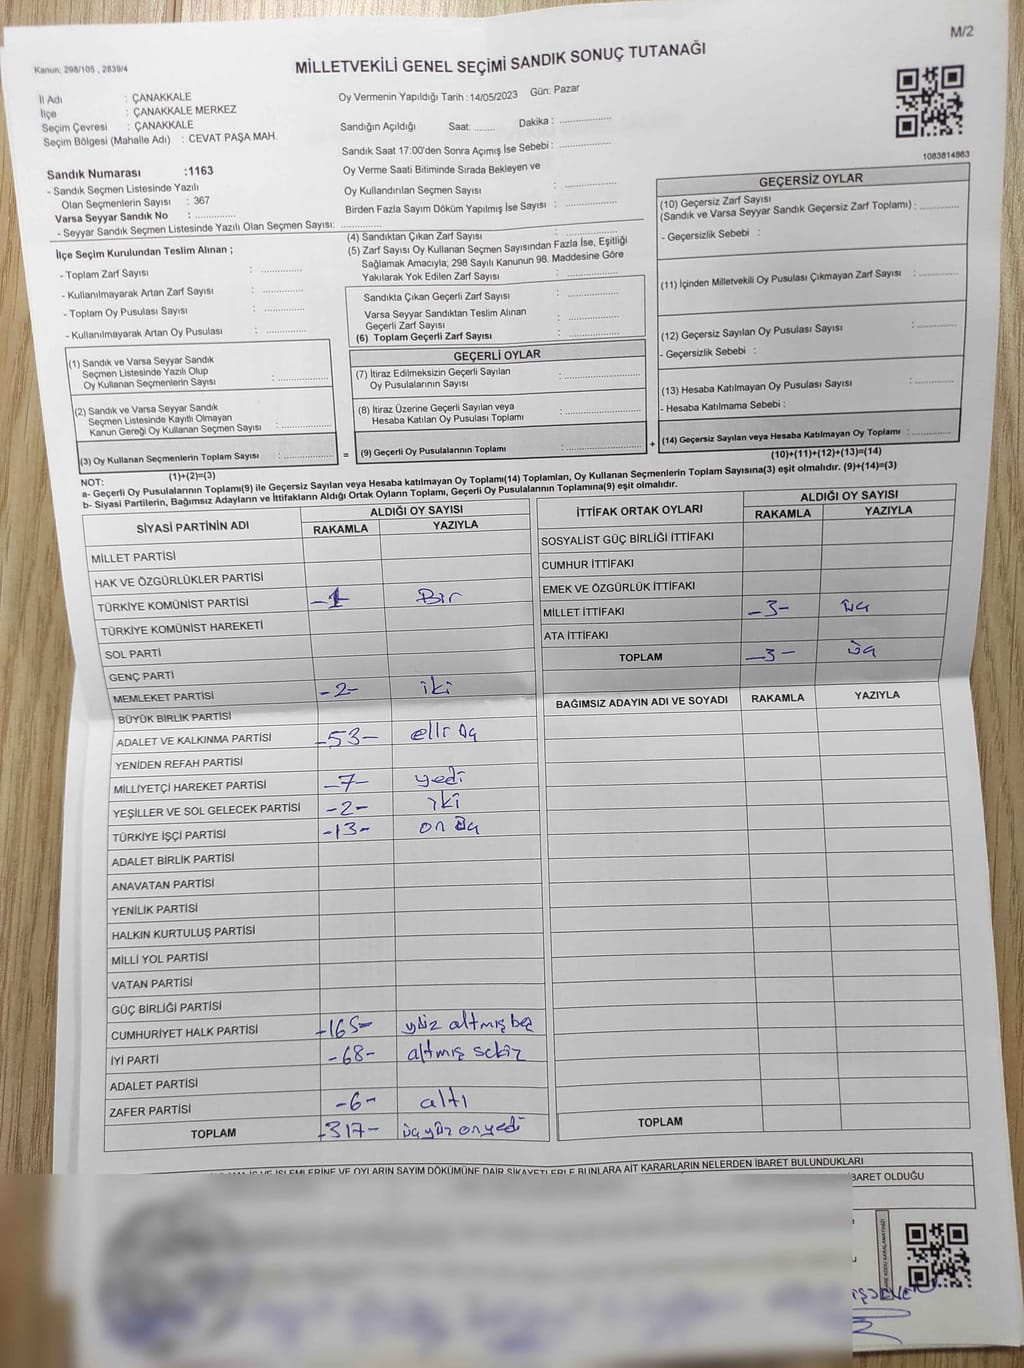 M/2
Kanun: 298/105 , 2839/4
MİLLETVEKİLİ GENEL SEÇİMİ SANDIK SONUÇ TUTANAĞI
İl Adı : ÇANAKKALE
İlçe : ÇANAKKALE MERKEZ
Seçim Çevresi : ÇANAKKALE
Seçim Bölgesi (Mahalle Adı) : CEVAT PAŞA MAH.
Sandık Numarası :1163
- Sandık Seçmen Listesinde Yazılı
Olan Seçmenlerin Sayısı : 367
Varsa Seyyar Sandık No : ..............
- Seyyar Sandık Seçmen Listesinde Yazılı Olan Seçmen Sayısı: ..............
Oy Vermenin Yapıldığı Tarih :14/05/2023 Gün: Pazar
Sandığın Açıldığı Saat: ........ Dakika : ..............
Sandık Saat 17:00'den Sonra Açımış İse Sebebi : ..............
Oy Verme Saati Bitiminde Sırada Bekleyen ve
Oy Kullandırılan Seçmen Sayısı : ..............
Birden Fazla Sayım Döküm Yapılmış İse Sayısı : ..............
1083814863
İlçe Seçim Kurulundan Teslim Alınan ;
- Toplam Zarf Sayısı : ..............
- Kullanılmayarak Artan Zarf Sayısı : ..............
- Toplam Oy Pusulası Sayısı : ..............
- Kullanılmayarak Artan Oy Pusulası : ..............
(1) Sandık ve Varsa Seyyar Sandık
Seçmen Listesinde Yazılı Olup
Oy Kullanan Seçmenlerin Sayısı : ..............
(2) Sandık ve Varsa Seyyar Sandık
Seçmen Listesinde Kayıtlı Olmayan
Kanun Gereği Oy Kullanan Seçmen Sayısı : ..............
(3) Oy Kullanan Seçmenlerin Toplam Sayısı : ..............
(1)+(2)=(3)
(4) Sandıktan Çıkan Zarf Sayısı : ..............
(5) Zarf Sayısı Oy Kullanan Seçmen Sayısından Fazla İse, Eşitliği
Sağlamak Amacıyla; 298 Sayılı Kanunun 98. Maddesine Göre
Yakılarak Yok Edilen Zarf Sayısı : ..............
Sandıkta Çıkan Geçerli Zarf Sayısı : ..............
Varsa Seyyar Sandıktan Teslim Alınan
Geçerli Zarf Sayısı : ..............
(6) Toplam Geçerli Zarf Sayısı : ..............
GEÇERLİ OYLAR
(7) İtiraz Edilmeksizin Geçerli Sayılan
Oy Pusulalarının Sayısı : ..............
(8) İtiraz Üzerine Geçerli Sayılan veya
Hesaba Katılan Oy Pusulası Toplamı : ..............
= (9) Geçerli Oy Pusulalarının Toplamı : .............. +
GEÇERSİZ OYLAR
(10) Geçersiz Zarf Sayısı
(Sandık ve Varsa Seyyar Sandık Geçersiz Zarf Toplamı) : ..............
- Geçersizlik Sebebi :
(11) İçinden Milletvekili Oy Pusulası Çıkmayan Zarf Sayısı : ..............
(12) Geçersiz Sayılan Oy Pusulası Sayısı : ..............
- Geçersizlik Sebebi :
(13) Hesaba Katılmayan Oy Pusulası Sayısı : ..............
- Hesaba Katılmama Sebebi :
(14) Geçersiz Sayılan veya Hesaba Katılmayan Oy Toplamı : ..............
(10)+(11)+(12)+(13)=(14)
NOT:
a- Geçerli Oy Pusulalarının Toplamı(9) ile Geçersiz Sayılan veya Hesaba katılmayan Oy Toplamı(14) Toplamları, Oy Kullanan Seçmenlerin Toplam Sayısına(3) eşit olmalıdır. (9)+(14)=(3)
b- Siyasi Partilerin, Bağımsız Adayların ve İttifakların Aldığı Ortak Oyların Toplamı, Geçerli Oy Pusulalarının Toplamına(9) eşit olmalıdır.
SİYASİ PARTİNİN ADI ALDIĞI OY SAYISI
RAKAMLA YAZIYLA
MİLLET PARTİSİ
HAK VE ÖZGÜRLÜKLER PARTİSİ
TÜRKİYE KOMÜNİST PARTİSİ -1- Bir
TÜRKİYE KOMÜNİST HAREKETİ
SOL PARTİ
GENÇ PARTİ
MEMLEKET PARTİSİ -2- iki
BÜYÜK BİRLİK PARTİSİ
ADALET VE KALKINMA PARTİSİ -53- elli üç
YENİDEN REFAH PARTİSİ
MİLLİYETÇİ HAREKET PARTİSİ -7- yedi
YEŞİLLER VE SOL GELECEK PARTİSİ -2- iki
TÜRKİYE İŞÇİ PARTİSİ -13- on üç
ADALET BİRLİK PARTİSİ
ANAVATAN PARTİSİ
YENİLİK PARTİSİ
HALKIN KURTULUŞ PARTİSİ
MİLLİ YOL PARTİSİ
VATAN PARTİSİ
GÜÇ BİRLİĞİ PARTİSİ
CUMHURİYET HALK PARTİSİ -165- yüz altmış beş
İYİ PARTİ -68- altmış sekiz
ADALET PARTİSİ
ZAFER PARTİSİ -6- altı
TOPLAM -317- üç yüz on yedi
İTTİFAK ORTAK OYLARI ALDIĞI OY SAYISI
RAKAMLA YAZIYLA
SOSYALİST GÜÇ BİRLİĞİ İTTİFAKI
CUMHUR İTTİFAKI
EMEK VE ÖZGÜRLÜK İTTİFAKI
MİLLET İTTİFAKI -3- üç
ATA İTTİFAKI
TOPLAM -3- üç
BAĞIMSIZ ADAYIN ADI VE SOYADI RAKAMLA YAZIYLA
TOPLAM
İŞLEMLERİNE VE OYLARIN SAYIM DÖKÜMÜNE DAİR ŞİKAYETLERLE BUNLARA AİT KARARLARIN NELERDEN İBARET BULUNDUKLARI
BARET OLDUĞU